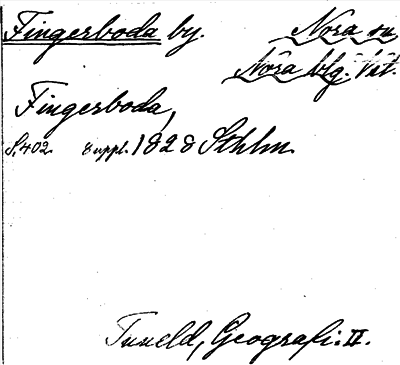 Fingerboda by. Nora sn
Nora blg. Vstm.
Fingerboda,
S. 402 8 uppl. 1828 Sthlm.
Tuneld, Geografi. II.